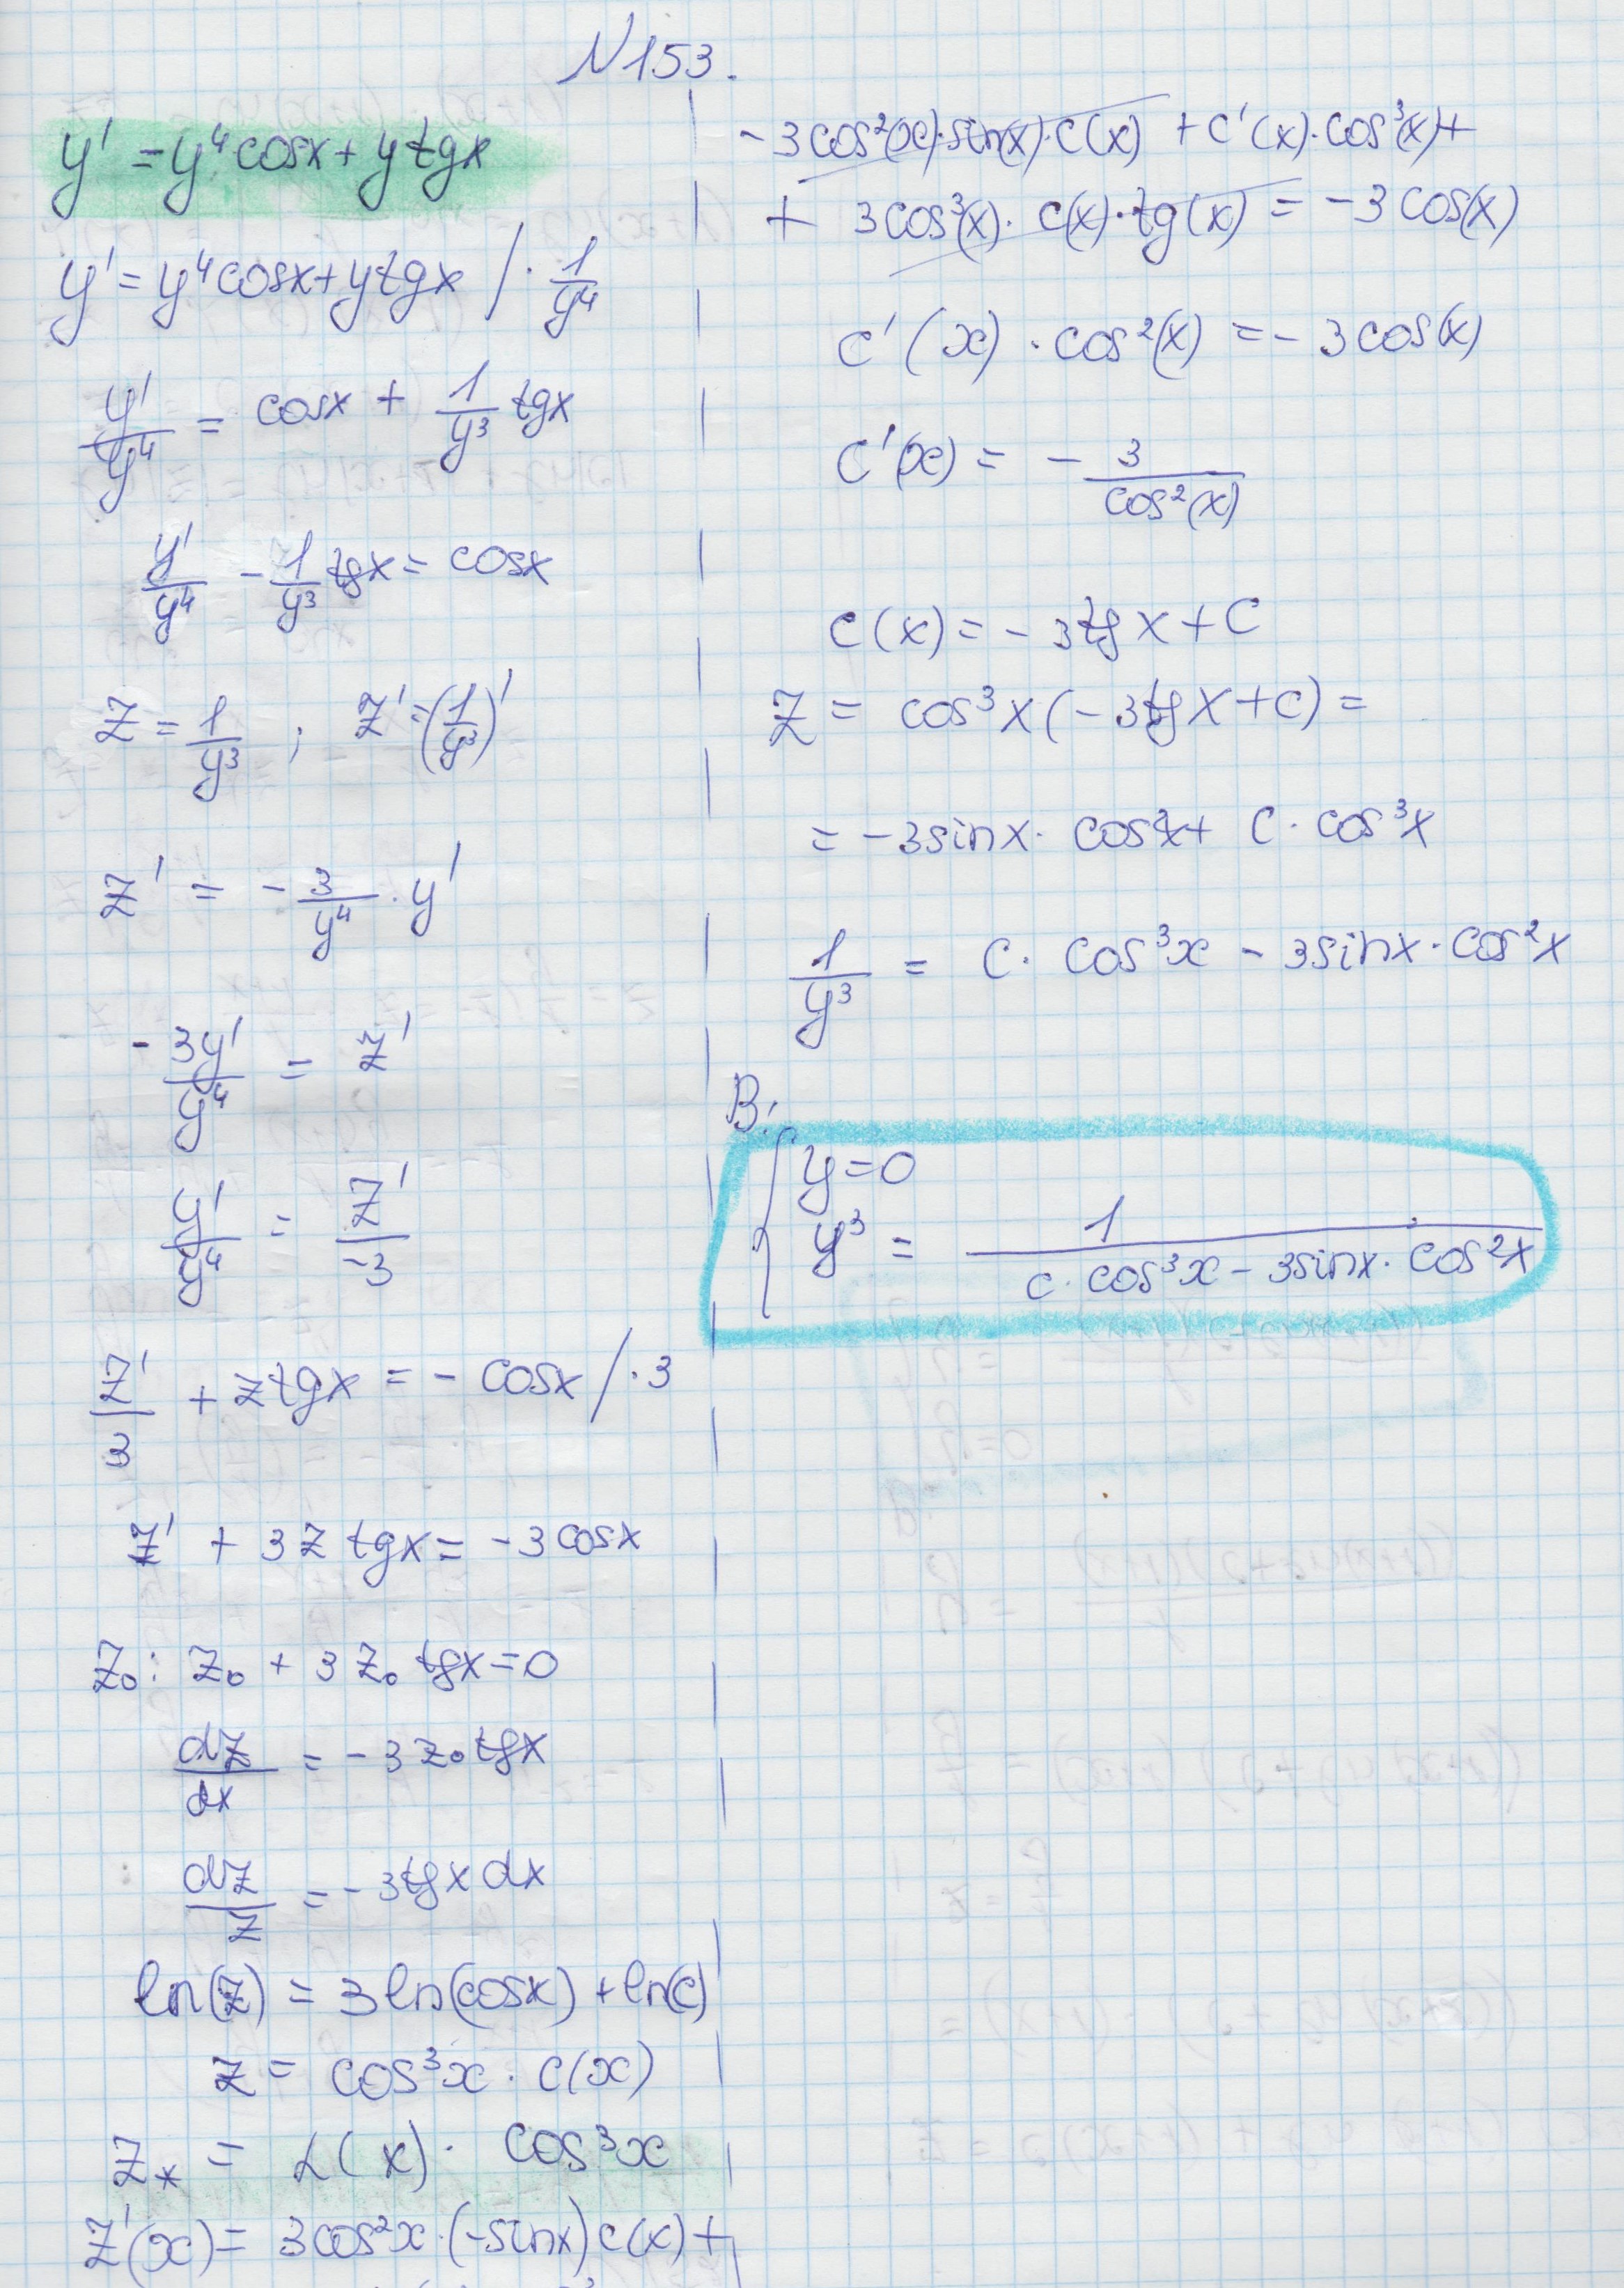 N153.
y' = y⁴cosx + y tgx
y' = y⁴cosx + y tgx / · 1/y⁴
y'/y⁴ = cosx + 1/y³ tgx
y'/y⁴ - 1/y³ tgx = cosx
z = 1/y³ ; z' = (1/y³)'
z' = - 3/y⁴ · y'
- 3y'/y⁴ = z'
y'/y⁴ = z'/-3
z'/3 + z tgx = - cosx / · 3
z' + 3z tgx = -3cosx
z₀: z₀ + 3z₀ tgx = 0
dz/dx = -3z₀ tgx
dz/z = -3tgx dx
ln(z) = 3ln(cosx) + ln(c)
z = cos³x · c(x)
z* = L(x) · cos³x
z'(x) = 3cos²x · (-sinx) c(x) +
-3cos²(x)·sin(x)·c(x) + c'(x)·cos³(x)+
+ 3cos³(x)· c(x)·tg(x) = -3cos(x)
c'(x) · cos²(x) = -3cos(x)
c'(x) = - 3/cos²(x)
c(x) = -3tgx + C
z = cos³x(-3tgx + c) =
= -3sinx · cos²x + c · cos³x
1/y³ = c · cos³x - 3sinx · cos²x
В:
{ y=0
y³ = 1/(c · cos³x - 3sinx · cos²x)